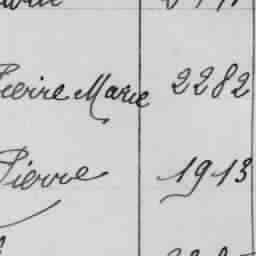 Pierre Marie 2282
Pierre 1913